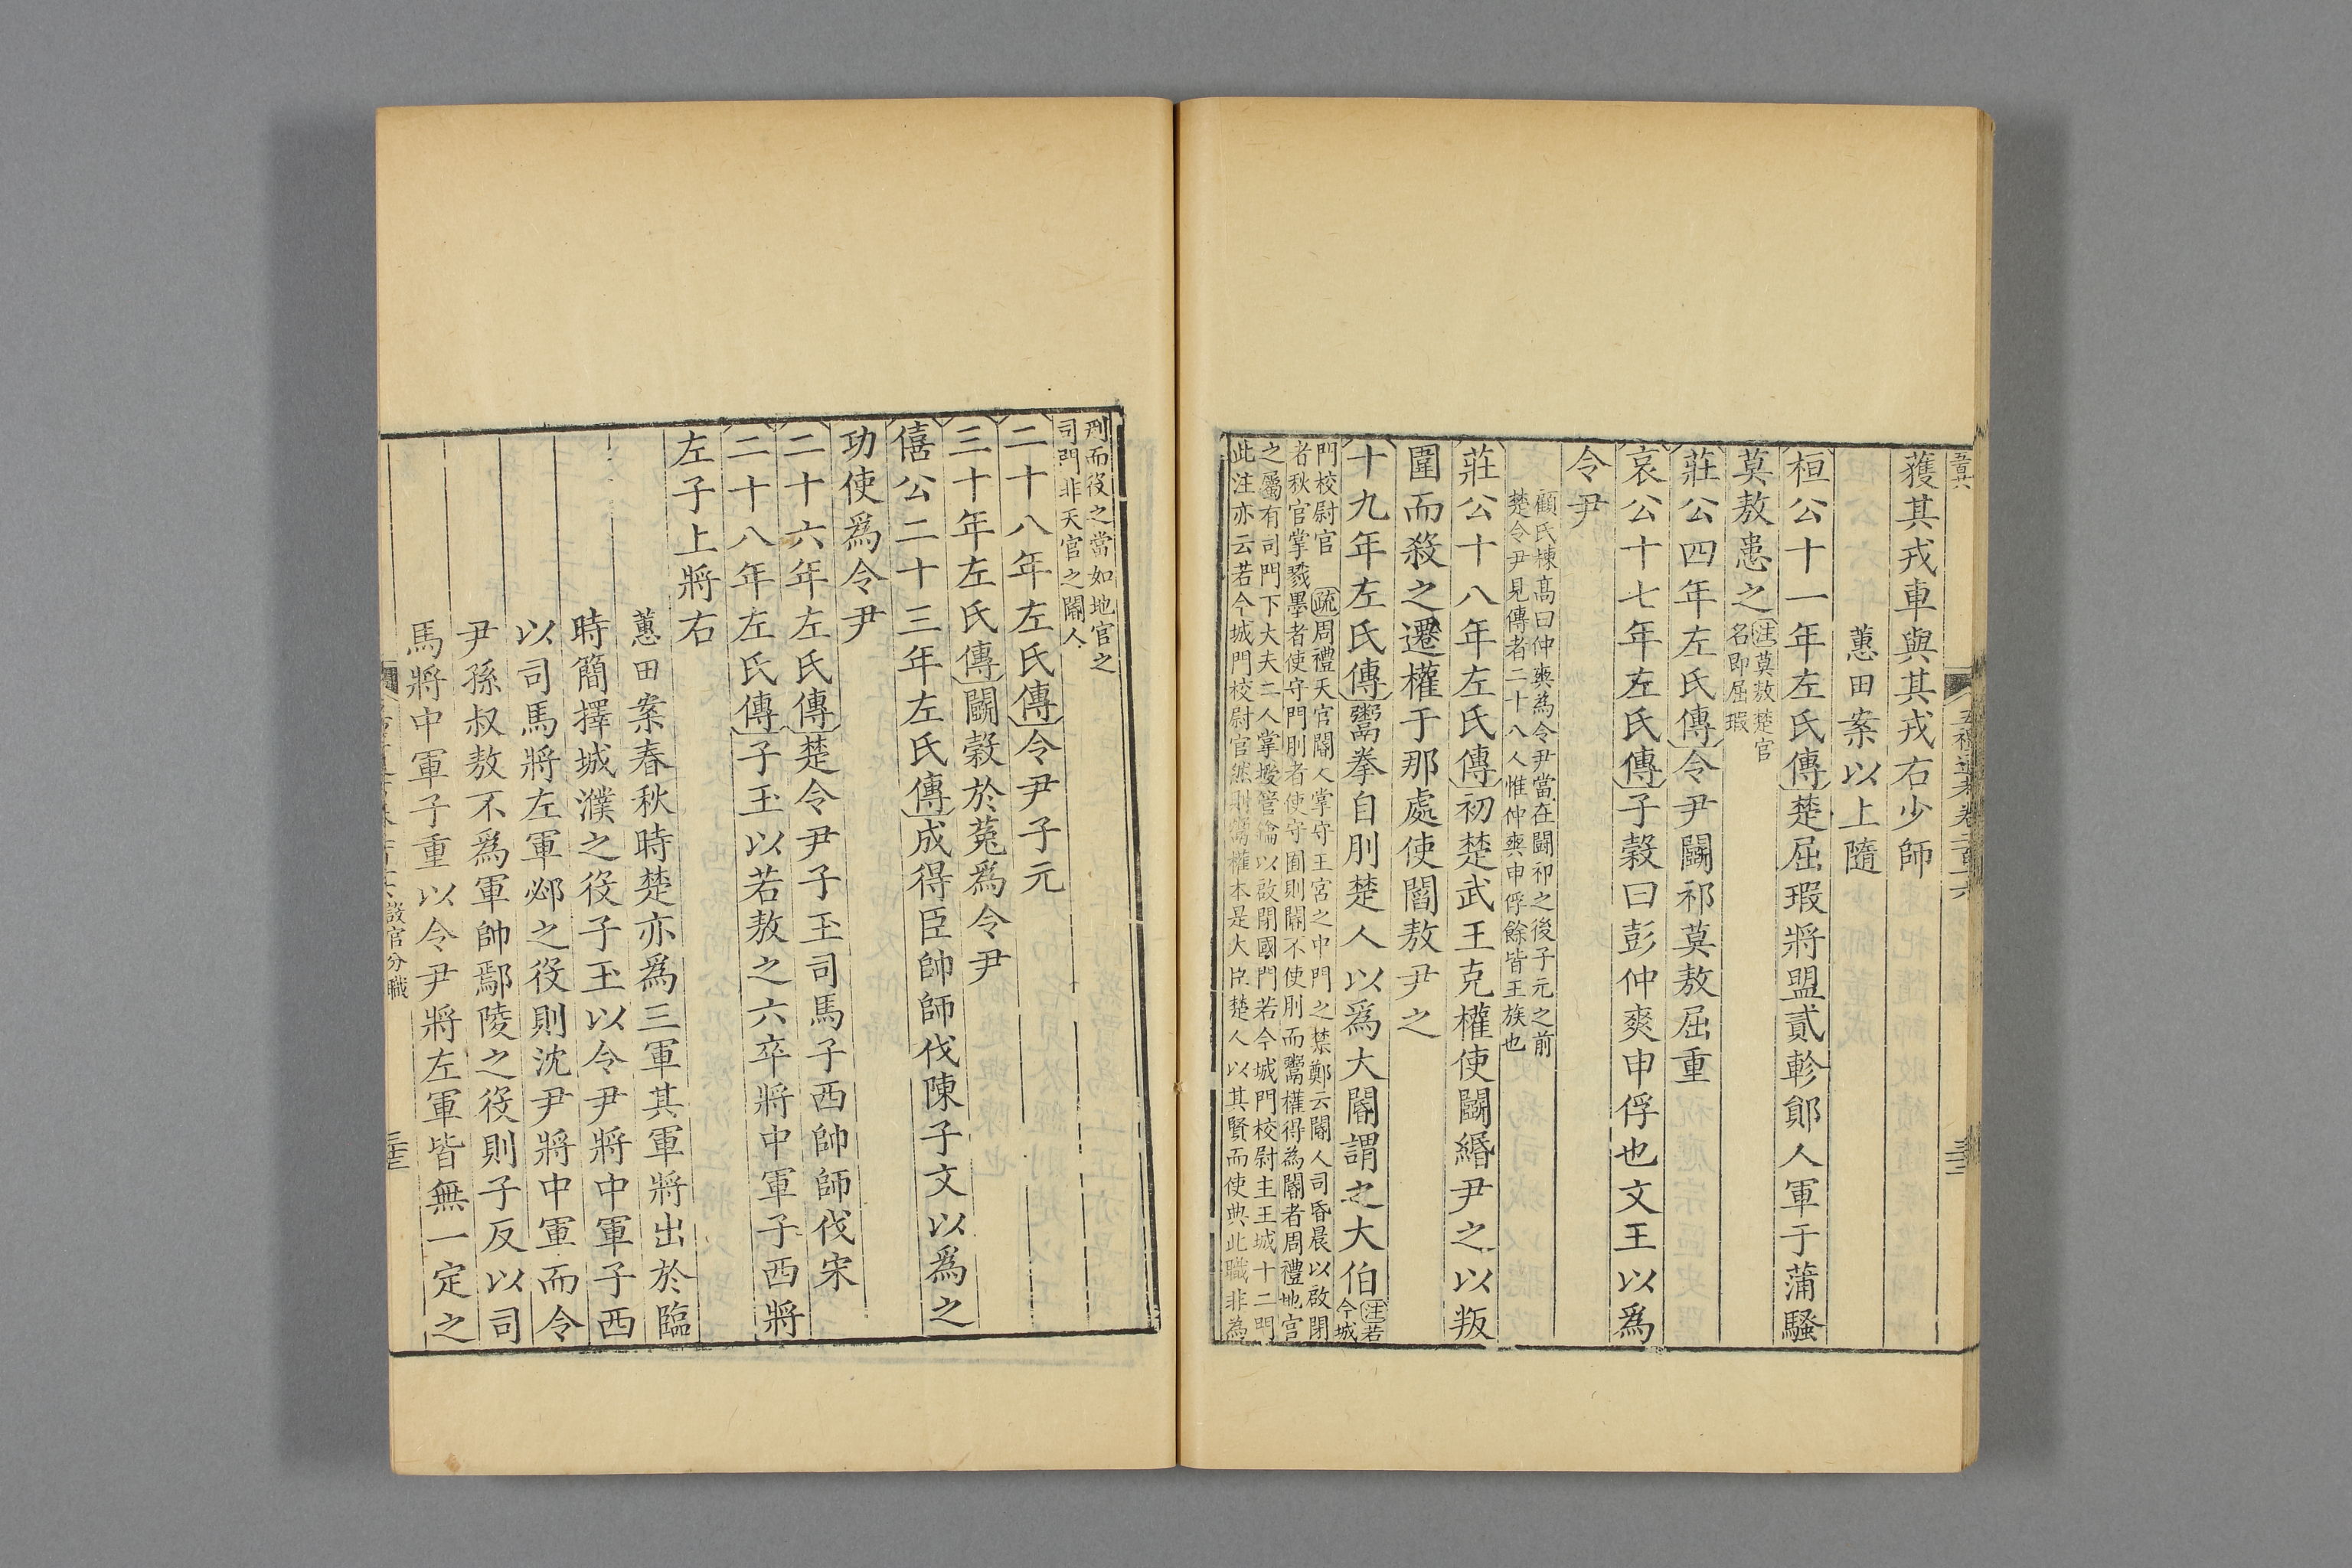 獲其戎車與其戎右少師
蕙田案以上隨
桓公十一年左氏傳楚屈瑕將盟貳軫鄖人軍于蒲騷
莫敖患之注莫敖楚官
名即屈瑕
莊公四年左氏傳令尹鬭祁莫敖屈重
哀公十七年左氏傳子穀曰彭仲爽申俘也文王以爲
令尹
顧氏棟高曰仲爽為令尹當在鬭祁之後子元之前
楚令尹見傳者二十八人惟仲爽申俘餘皆王族也
莊公十八年左氏傳初楚武王克權使鬭緡尹之以叛
圍而殺之遷權于那處使閻敖尹之
十九年左氏傳鬻拳自刖楚人以爲大閽謂之大伯注若
今城
門校尉官疏周禮天官閽人掌守王宮之中門之禁鄭云閽人司昏晨以啟閉
者秋官掌戮墨者使守門刖者使守囿則閽不使刖而鬻權得為閽者周禮地官
之屬有司門下大夫二人掌授管鑰以啟閉國門若今城門校尉主王城十二門
此注亦云若今城門校尉官然則鬻權本是大臣楚人以其賢而使典此職非為
刑而役之當如地官之
司門非天官之閽人
二十八年左氏傳令尹子元
三十年左氏傳鬭穀於菟爲令尹
僖公二十三年左氏傳成得臣帥師伐陳子文以爲之
功使爲令尹
二十六年左氏傳楚令尹子玉司馬子西帥師伐宋
二十八年左氏傳子玉以若敖之六卒將中軍子西將
左子上將右
蕙田案春秋時楚亦爲三軍其軍將出於臨
時簡擇城濮之役子玉以令尹將中軍子西
以司馬將左軍邲之役則沈尹將中軍而令
尹孫叔敖不爲軍帥鄢陵之役則子反以司
馬將中軍子重以令尹將左軍皆無一定之
設官分職